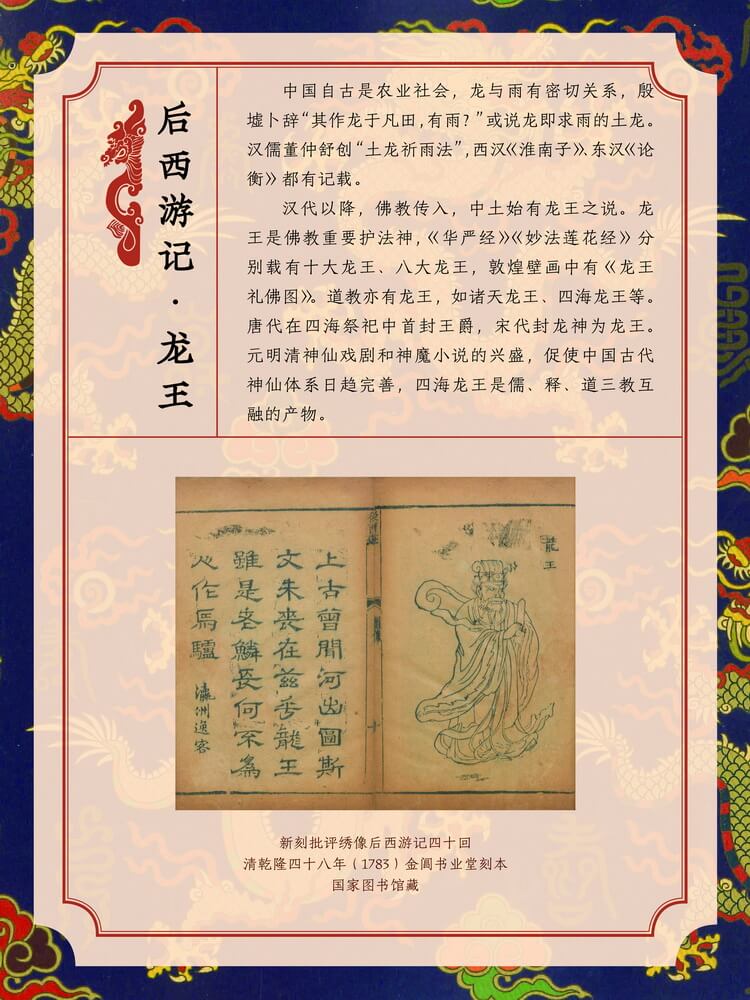 后西游记·龙王
中国自古是农业社会，龙与雨有密切关系，殷
墟卜辞“其作龙于凡田，有雨？”或说龙即求雨的土龙。
汉儒董仲舒创“土龙祈雨法”，西汉《淮南子》、东汉《论
衡》都有记载。
汉代以降，佛教传入，中土始有龙王之说。龙
王是佛教重要护法神，《华严经》《妙法莲花经》分
别载有十大龙王、八大龙王，敦煌壁画中有《龙王
礼佛图》。道教亦有龙王，如诸天龙王、四海龙王等。
唐代在四海祭祀中首封王爵，宋代封龙神为龙王。
元明清神仙戏剧和神魔小说的兴盛，促使中国古代
神仙体系日趋完善，四海龙王是儒、释、道三教互
融的产物。
龍王
上古曾聞河出圖斯
文未喪在茲乎龍王
雖是老鱗長何不爲
人作馬驢
瀛洲逸客
新刻批评绣像后西游记四十回
清乾隆四十八年（1783）金阊书业堂刻本
国家图书馆藏